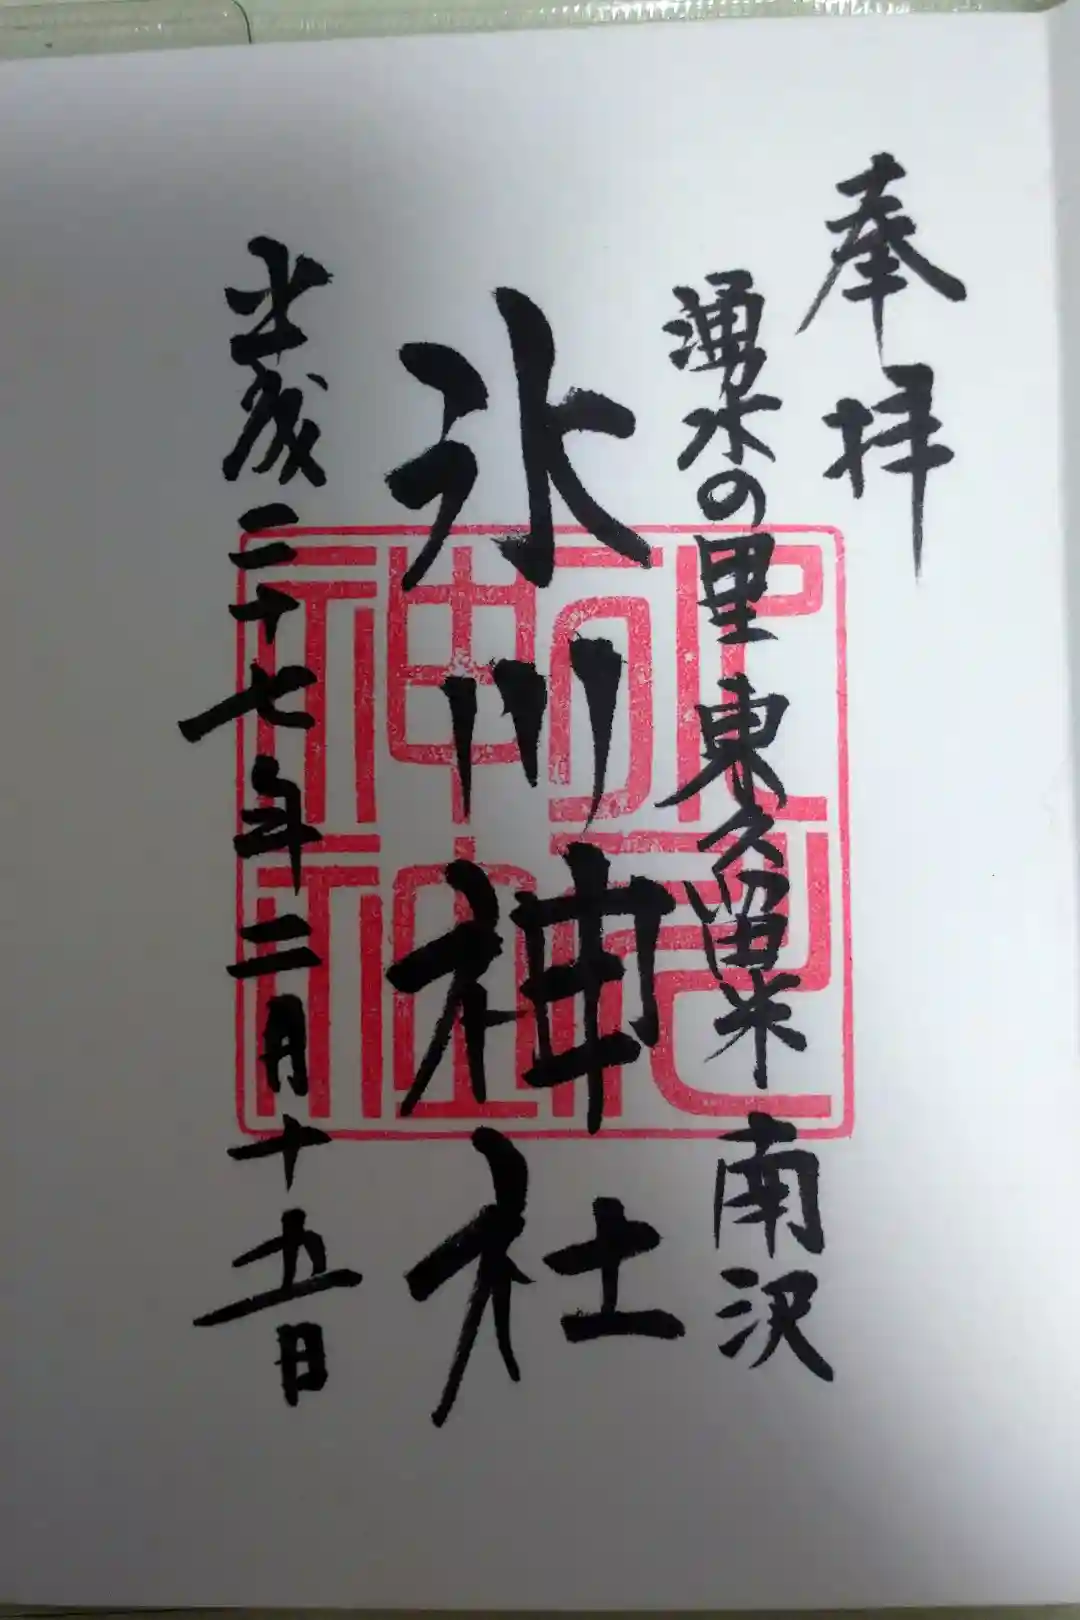 奉拝
湧水の里 東久留米 南沢
氷川神社
平成二十七年二月十五日
氷川
神社